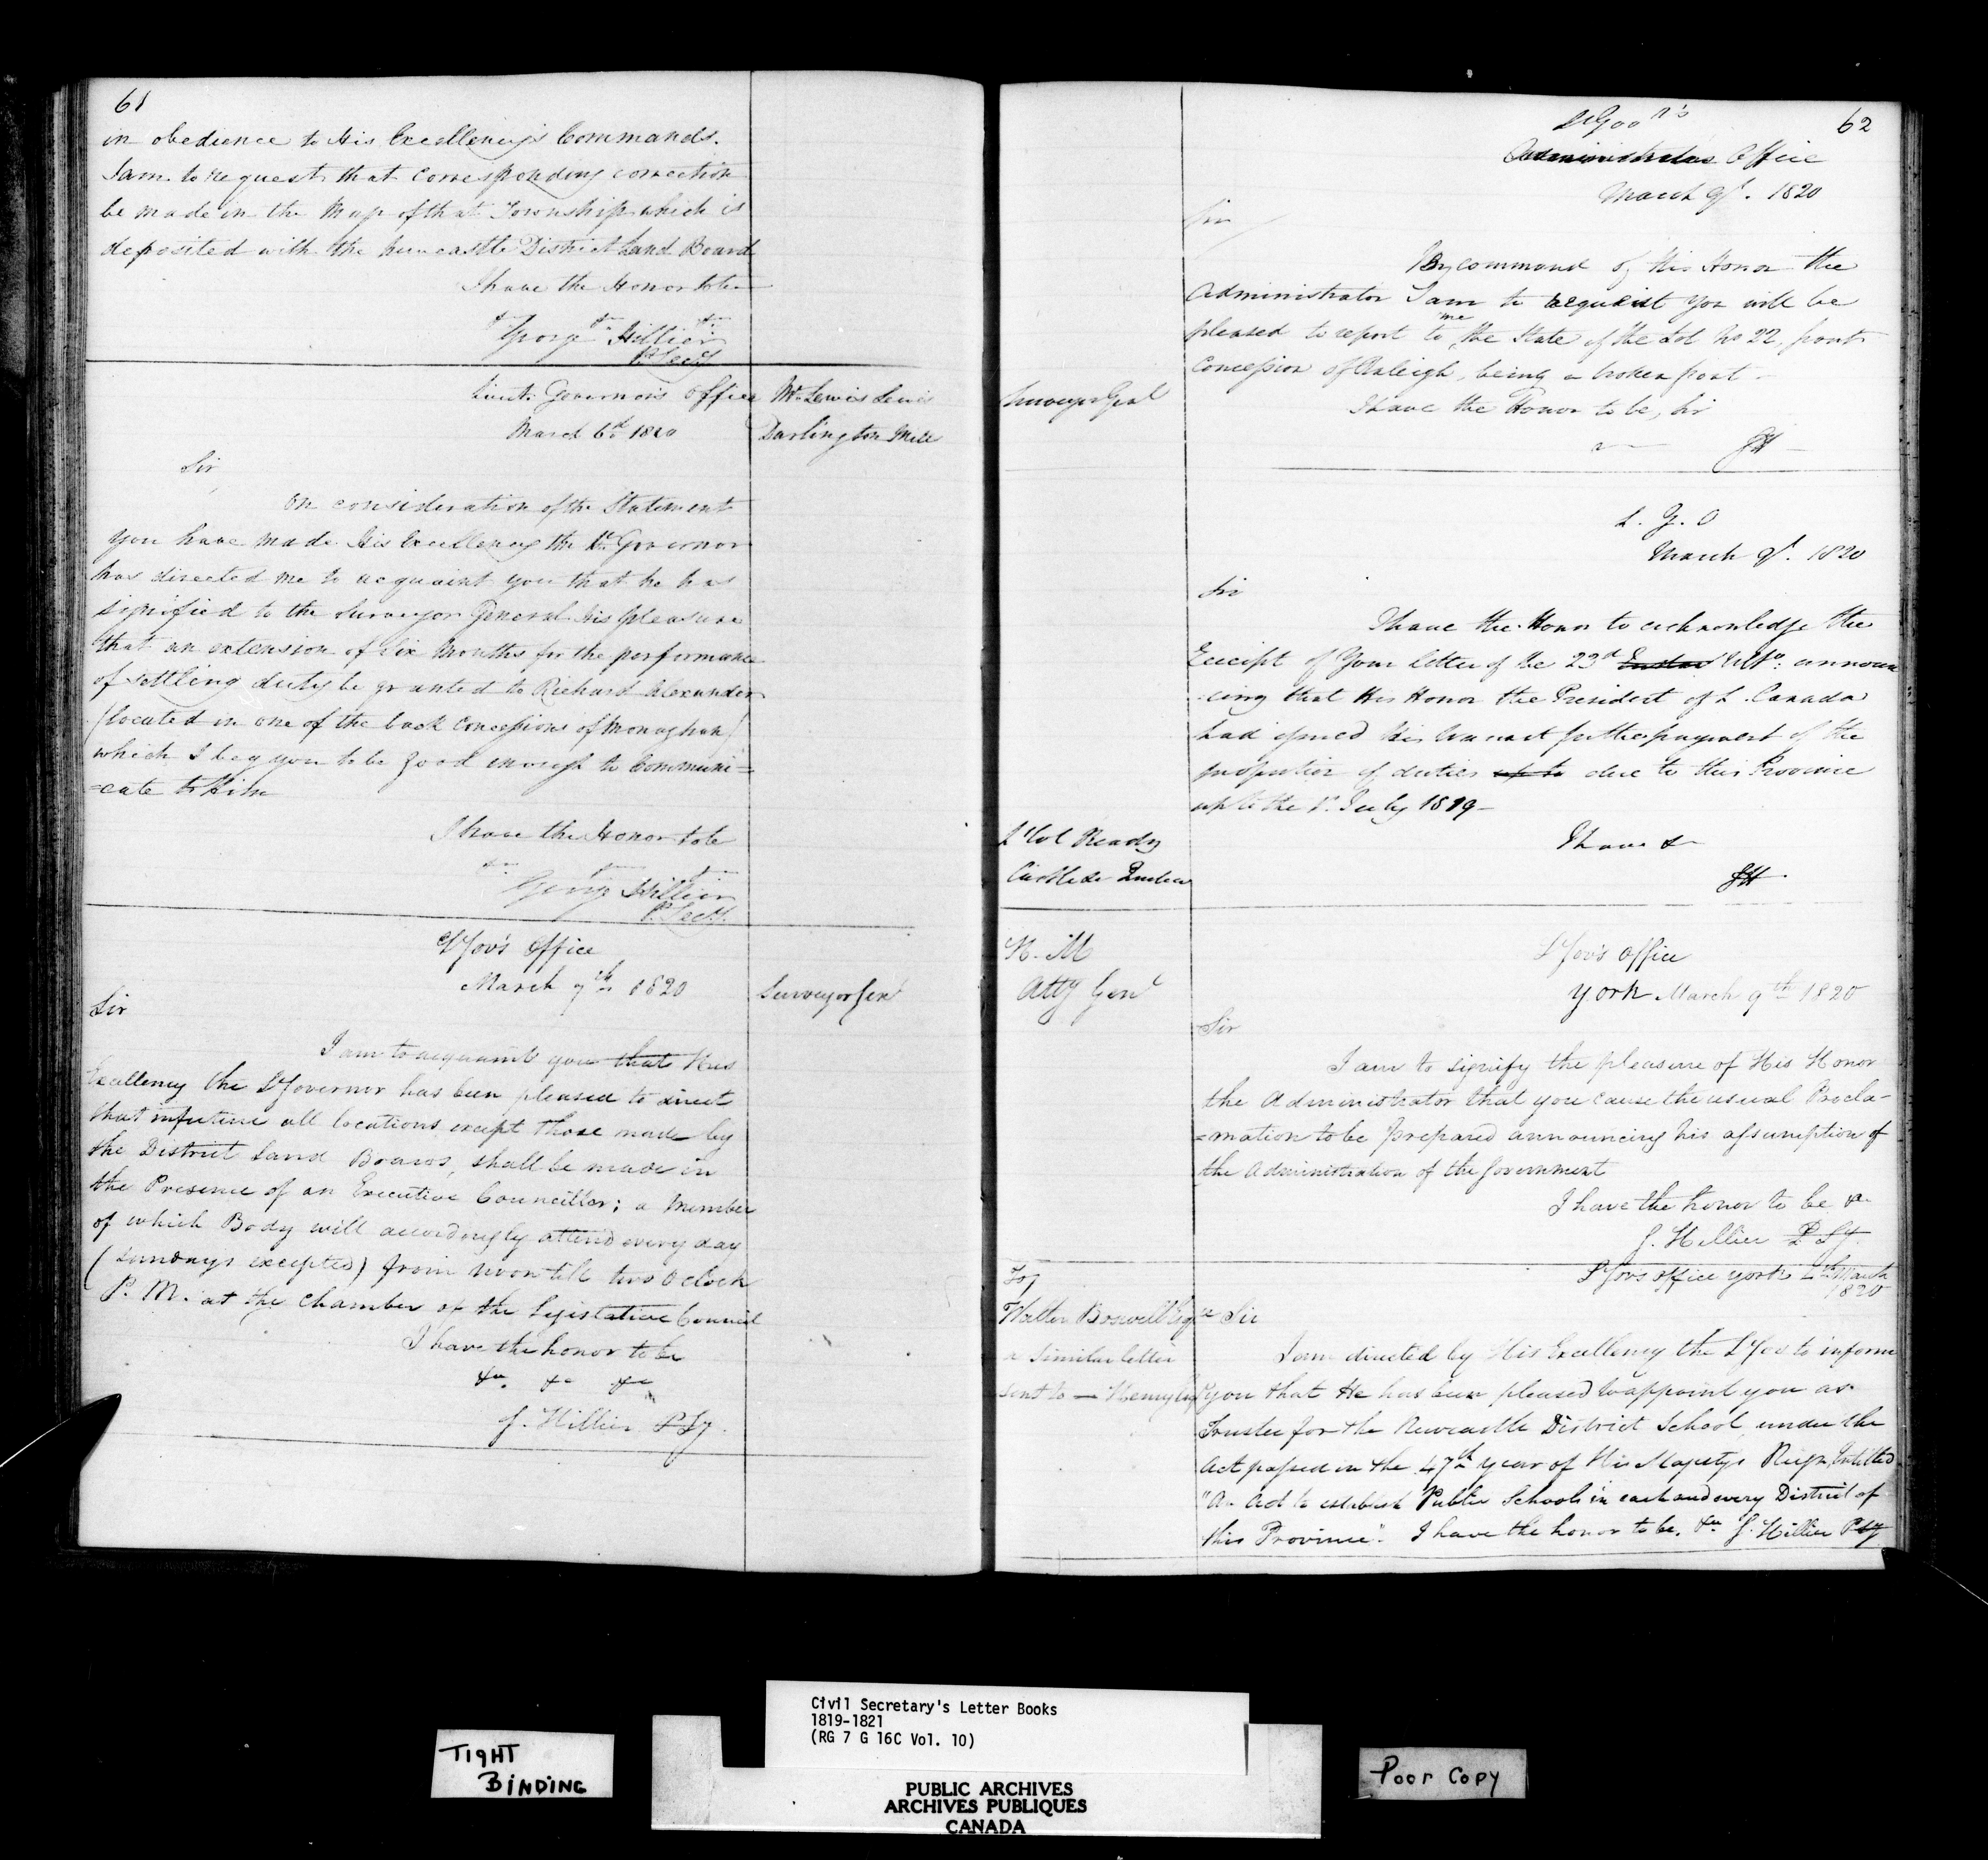 61
in obedience to His Excellency's Commands.
I am to request that corresponding correction
be made in the Map of that Township which is
deposited with the Newcastle District Land Board
I have the Honor to be
&c &c &c
George Hillier
P. Secy
Lieut. Governor's Office
March 6th 1820
Mr. Lewis Lewis
Darlington Mill
Sir
On consideration of the Statement
you have made His Excellency the Lt. Governor
has directed me to acquaint you that he has
signified to the Surveyor General His pleasure
that an extension of Six Months for the performance
of settling duty be granted to Richard Alexander
(located in one of the back Concessions of Monaghan)
which I beg you to be good enough to Communi=
=cate to him
I have the Honor to be
&c &c &c
George Hillier
P. Secy.
Lt Gov's Office
March 7th 1820
Surveyor Genl
Sir
I am to acquaint you that His
Excellency the Lt Governor has been pleased to direct
that in future all locations except those made by
the District Land Boards, shall be made in
the Presence of an Executive Councillor; a Member
of which Body will accordingly attend every day
(Sundays excepted) from noon till two O'clock
P. M. at the Chamber of the Legislative Council
I have the honor to be
&c. &c &c
G. Hillier P Sy.
62
Administrators Office
March 9th. 1820
Sir
By command of His Honor the
Administrator I am to request you will be
pleased to report to me the State of the Lot No 22, front
Concession of Raleigh, being a broken front.
Surveyor Genl
I have the Honor to be, Sir
GH
L. G. O
March 9th. 1820
Sir
I have the Honor to acknowledge the
Receipt of Your letter of the 23d Ulto. announ
-cing that His Honor the President of L. Canada
had issued his Warrant for the payment of the
proportion of duties up to due to this Province
up to the 1st. July 1819-
Lt Col Ready
Castle Quebec
I have &
GH.
H. M
Atty Genl
Lt Gov's Office
York March 9th 1820
Sir
I am to signify the pleasure of His Honor
the Administrator that you cause the usual Procla-
=mation to be prepared announcing his assumption of
the Administration of the Government
I have the honor to be &c
G. Hillier P Sy.
Lt Govs office York 4th March
1820
To
Walter Boswell Esqre
a similar letter
sent to — Henry
Sir
I am directed by His Excellency the Lt Gov to inform
you that He has been pleased to appoint you as
Trustee for the Newcastle District School, under the
Act passed in the 47th year of His Majestys Reign, Intitled
"An Act to establish Public Schools in each and every District of
this Province". I have the honor to be. &c G. Hillier P Sy
TIGHT
BINDING
Civil Secretary's Letter Books
1819-1821
(RG 7 G 16C Vol. 10)
PUBLIC ARCHIVES
ARCHIVES PUBLIQUES
CANADA
Poor Copy